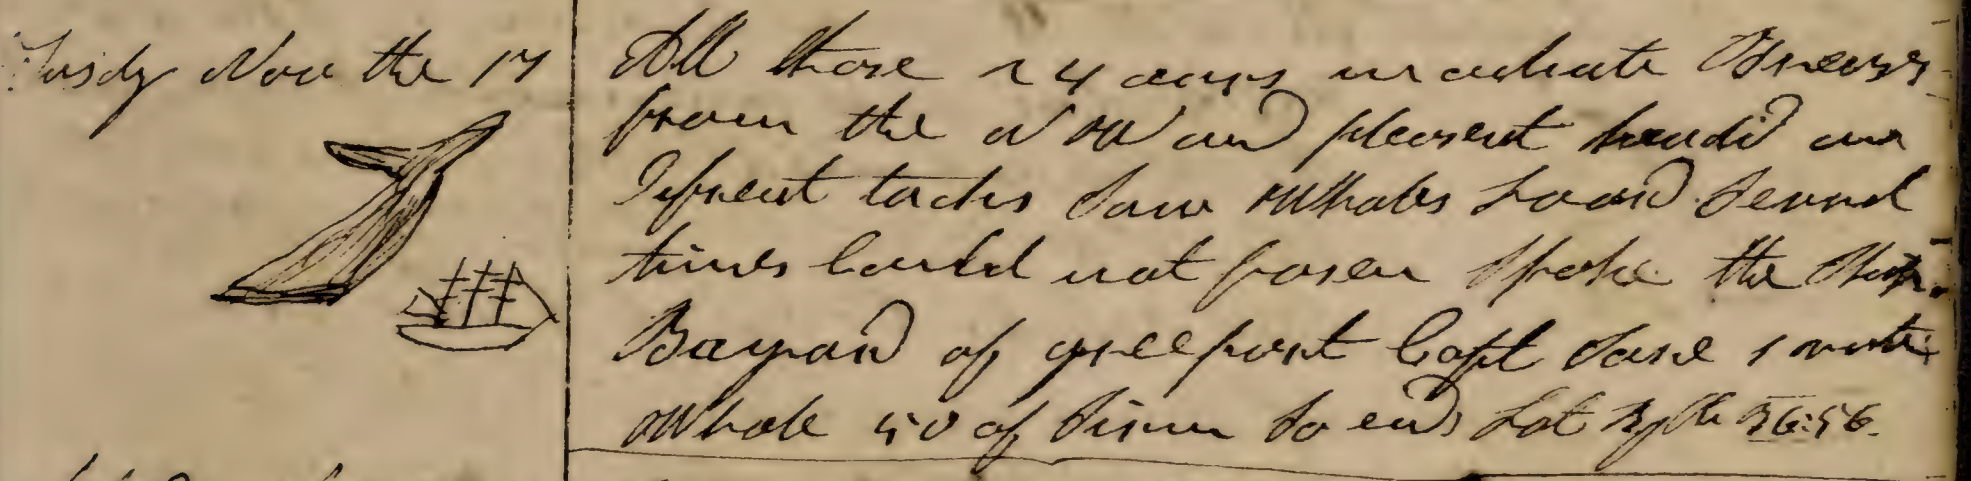 Tusdy Nov the 17
All these 24 ours moderate Breezes
from the N W and pleasent headid on
Difrent tacks Saw Whales Loard Several
times Could not fasen Spoke the Ship
Bayard of greeport Capt
Whale 50 of Sison So ends Lat 36:56